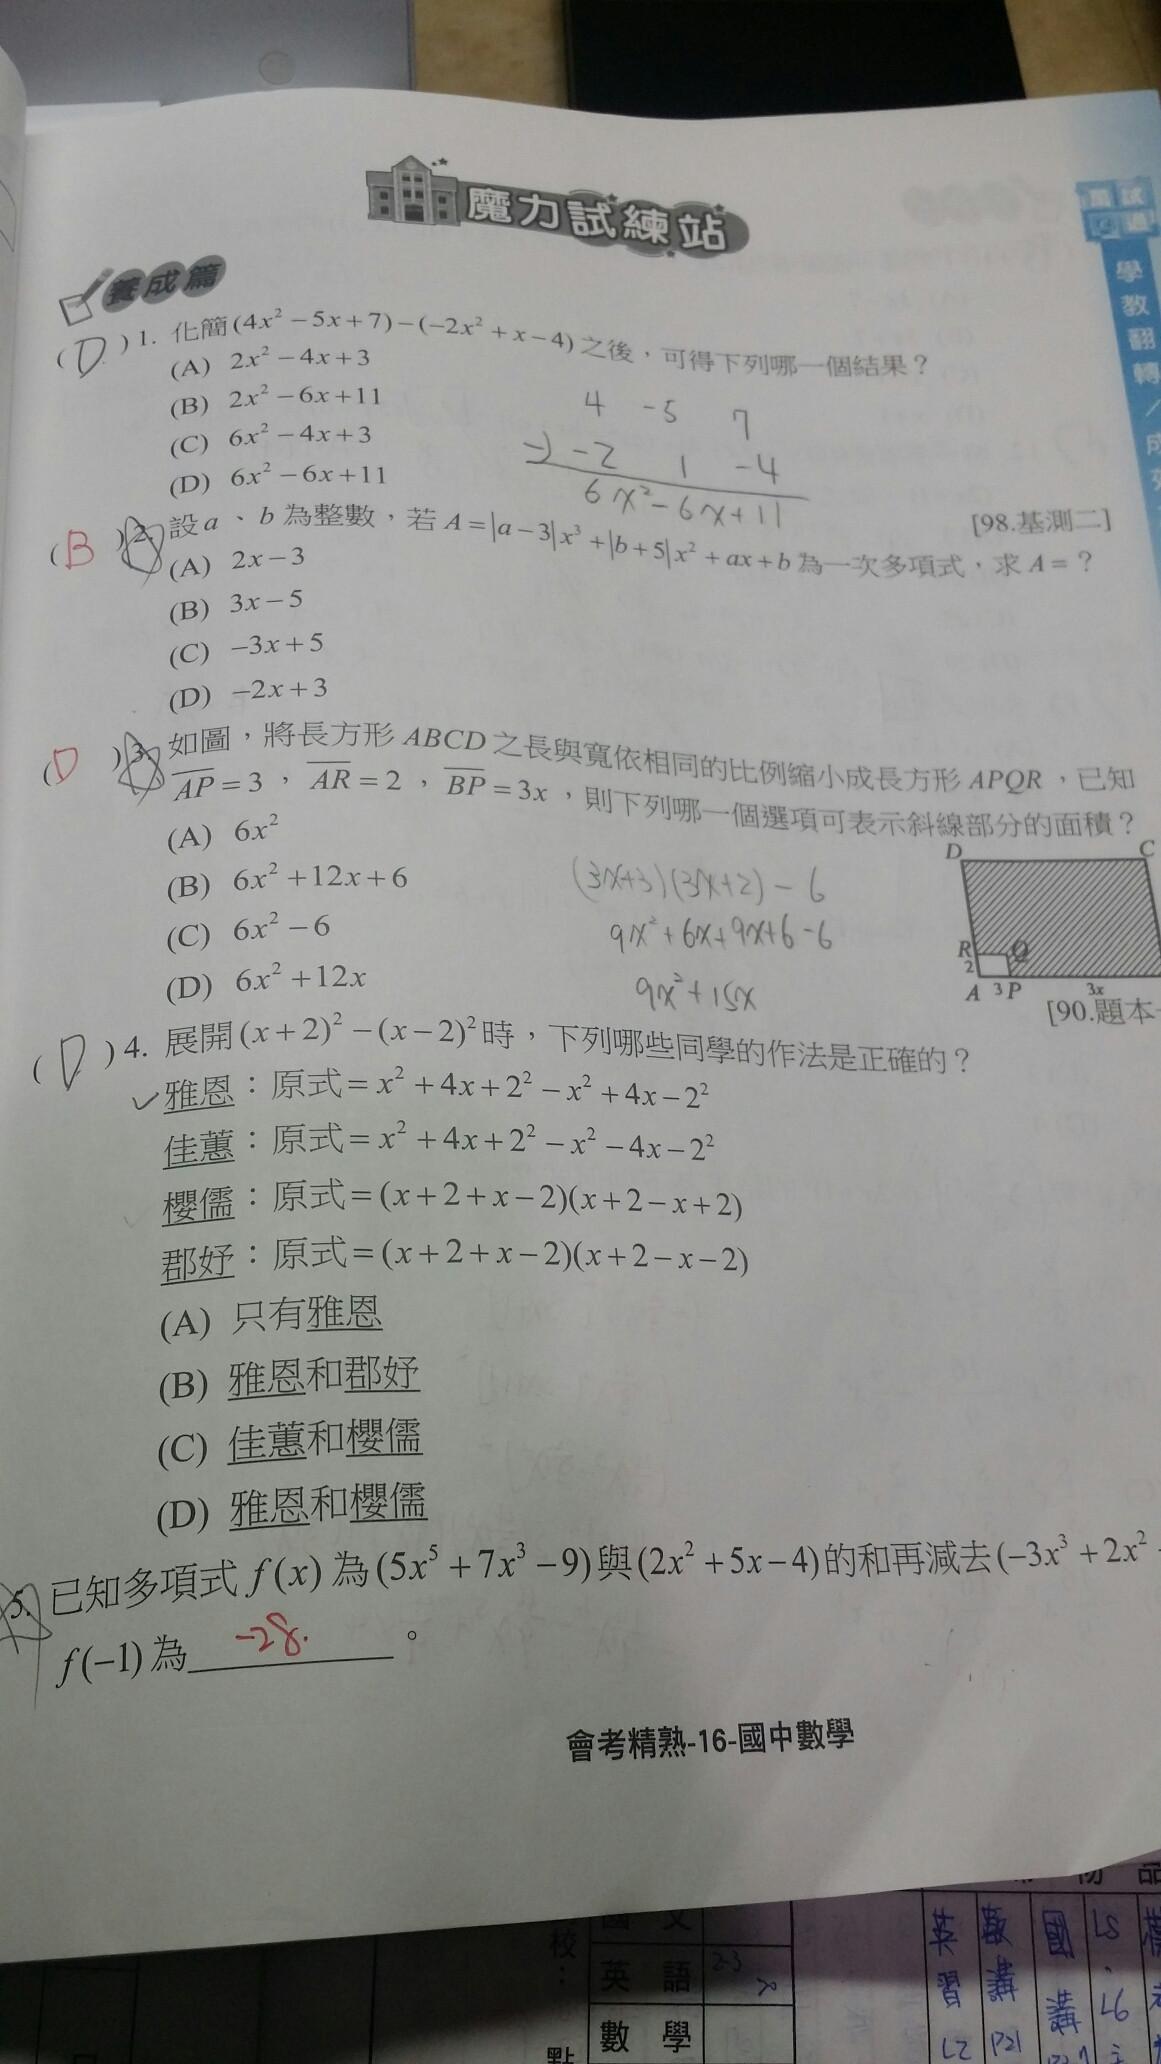 魔力試練站
養成篇
學教翻轉／成
(D) 1. 化簡(4x²－5x＋7)－(－2x²＋x－4)之後，可得下列哪一個結果？
(A) 2x²－4x＋3
(B) 2x²－6x＋11
(C) 6x²－4x＋3
(D) 6x²－6x＋11
4 -5 7
-) -2 1 -4
6x²-6x+11
[98.基測二]
(B) 2. 設a、b為整數，若A＝|a－3|x³＋|b＋5|x²＋ax＋b為一次多項式，求A＝？
(A) 2x－3
(B) 3x－5
(C) －3x＋5
(D) －2x＋3
(D) 3. 如圖，將長方形ABCD之長與寬依相同的比例縮小成長方形APQR，已知
AP＝3，AR＝2，BP＝3x，則下列哪一個選項可表示斜線部分的面積？
(A) 6x²
(B) 6x²＋12x＋6
(C) 6x²－6
(D) 6x²＋12x
(3x+3)(3x+2)-6
9x²+6x+9x+6-6
9x²+15x
D C
R Q
2
A 3 P 3x
[90.題本
(D) 4. 展開(x＋2)²－(x－2)²時，下列哪些同學的作法是正確的？
雅恩：原式＝x²＋4x＋2²－x²＋4x－2²
佳蕙：原式＝x²＋4x＋2²－x²－4x－2²
櫻儒：原式＝(x＋2＋x－2)(x＋2－x＋2)
郡妤：原式＝(x＋2＋x－2)(x＋2－x－2)
(A) 只有雅恩
(B) 雅恩和郡妤
(C) 佳蕙和櫻儒
(D) 雅恩和櫻儒
5. 已知多項式f(x)為(5x⁵＋7x³－9)與(2x²＋5x－4)的和再減去(－3x³＋2x²
f(－1)為 -28. 。
會考精熟-16-國中數學
國文
英語 2-3
數學
英習 L2
數講 P21
國講
L5、L6